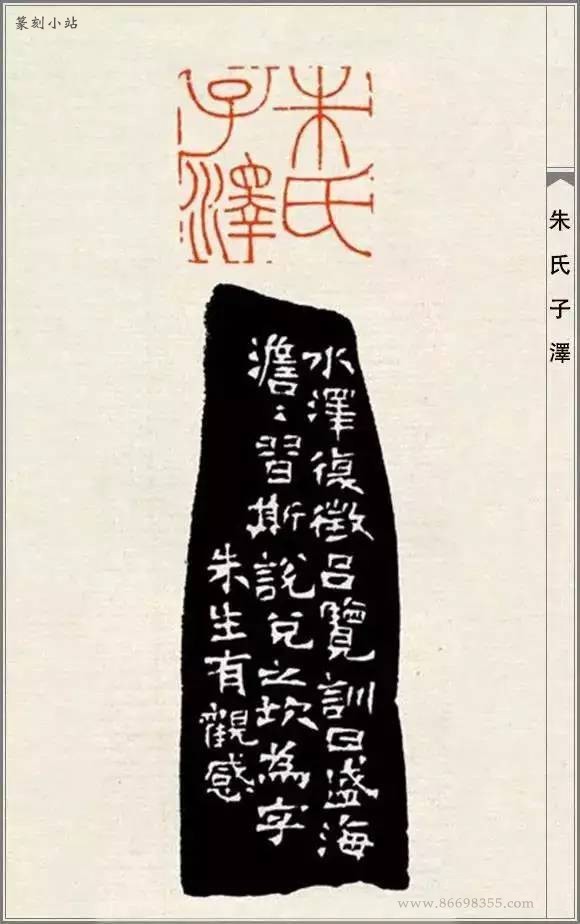 篆刻小站
朱氏
子澤
朱氏子澤
水澤復徵呂覽訓曰盛海
澹:習斯說兌之坎為字
朱生有觀感
www.86698355.com